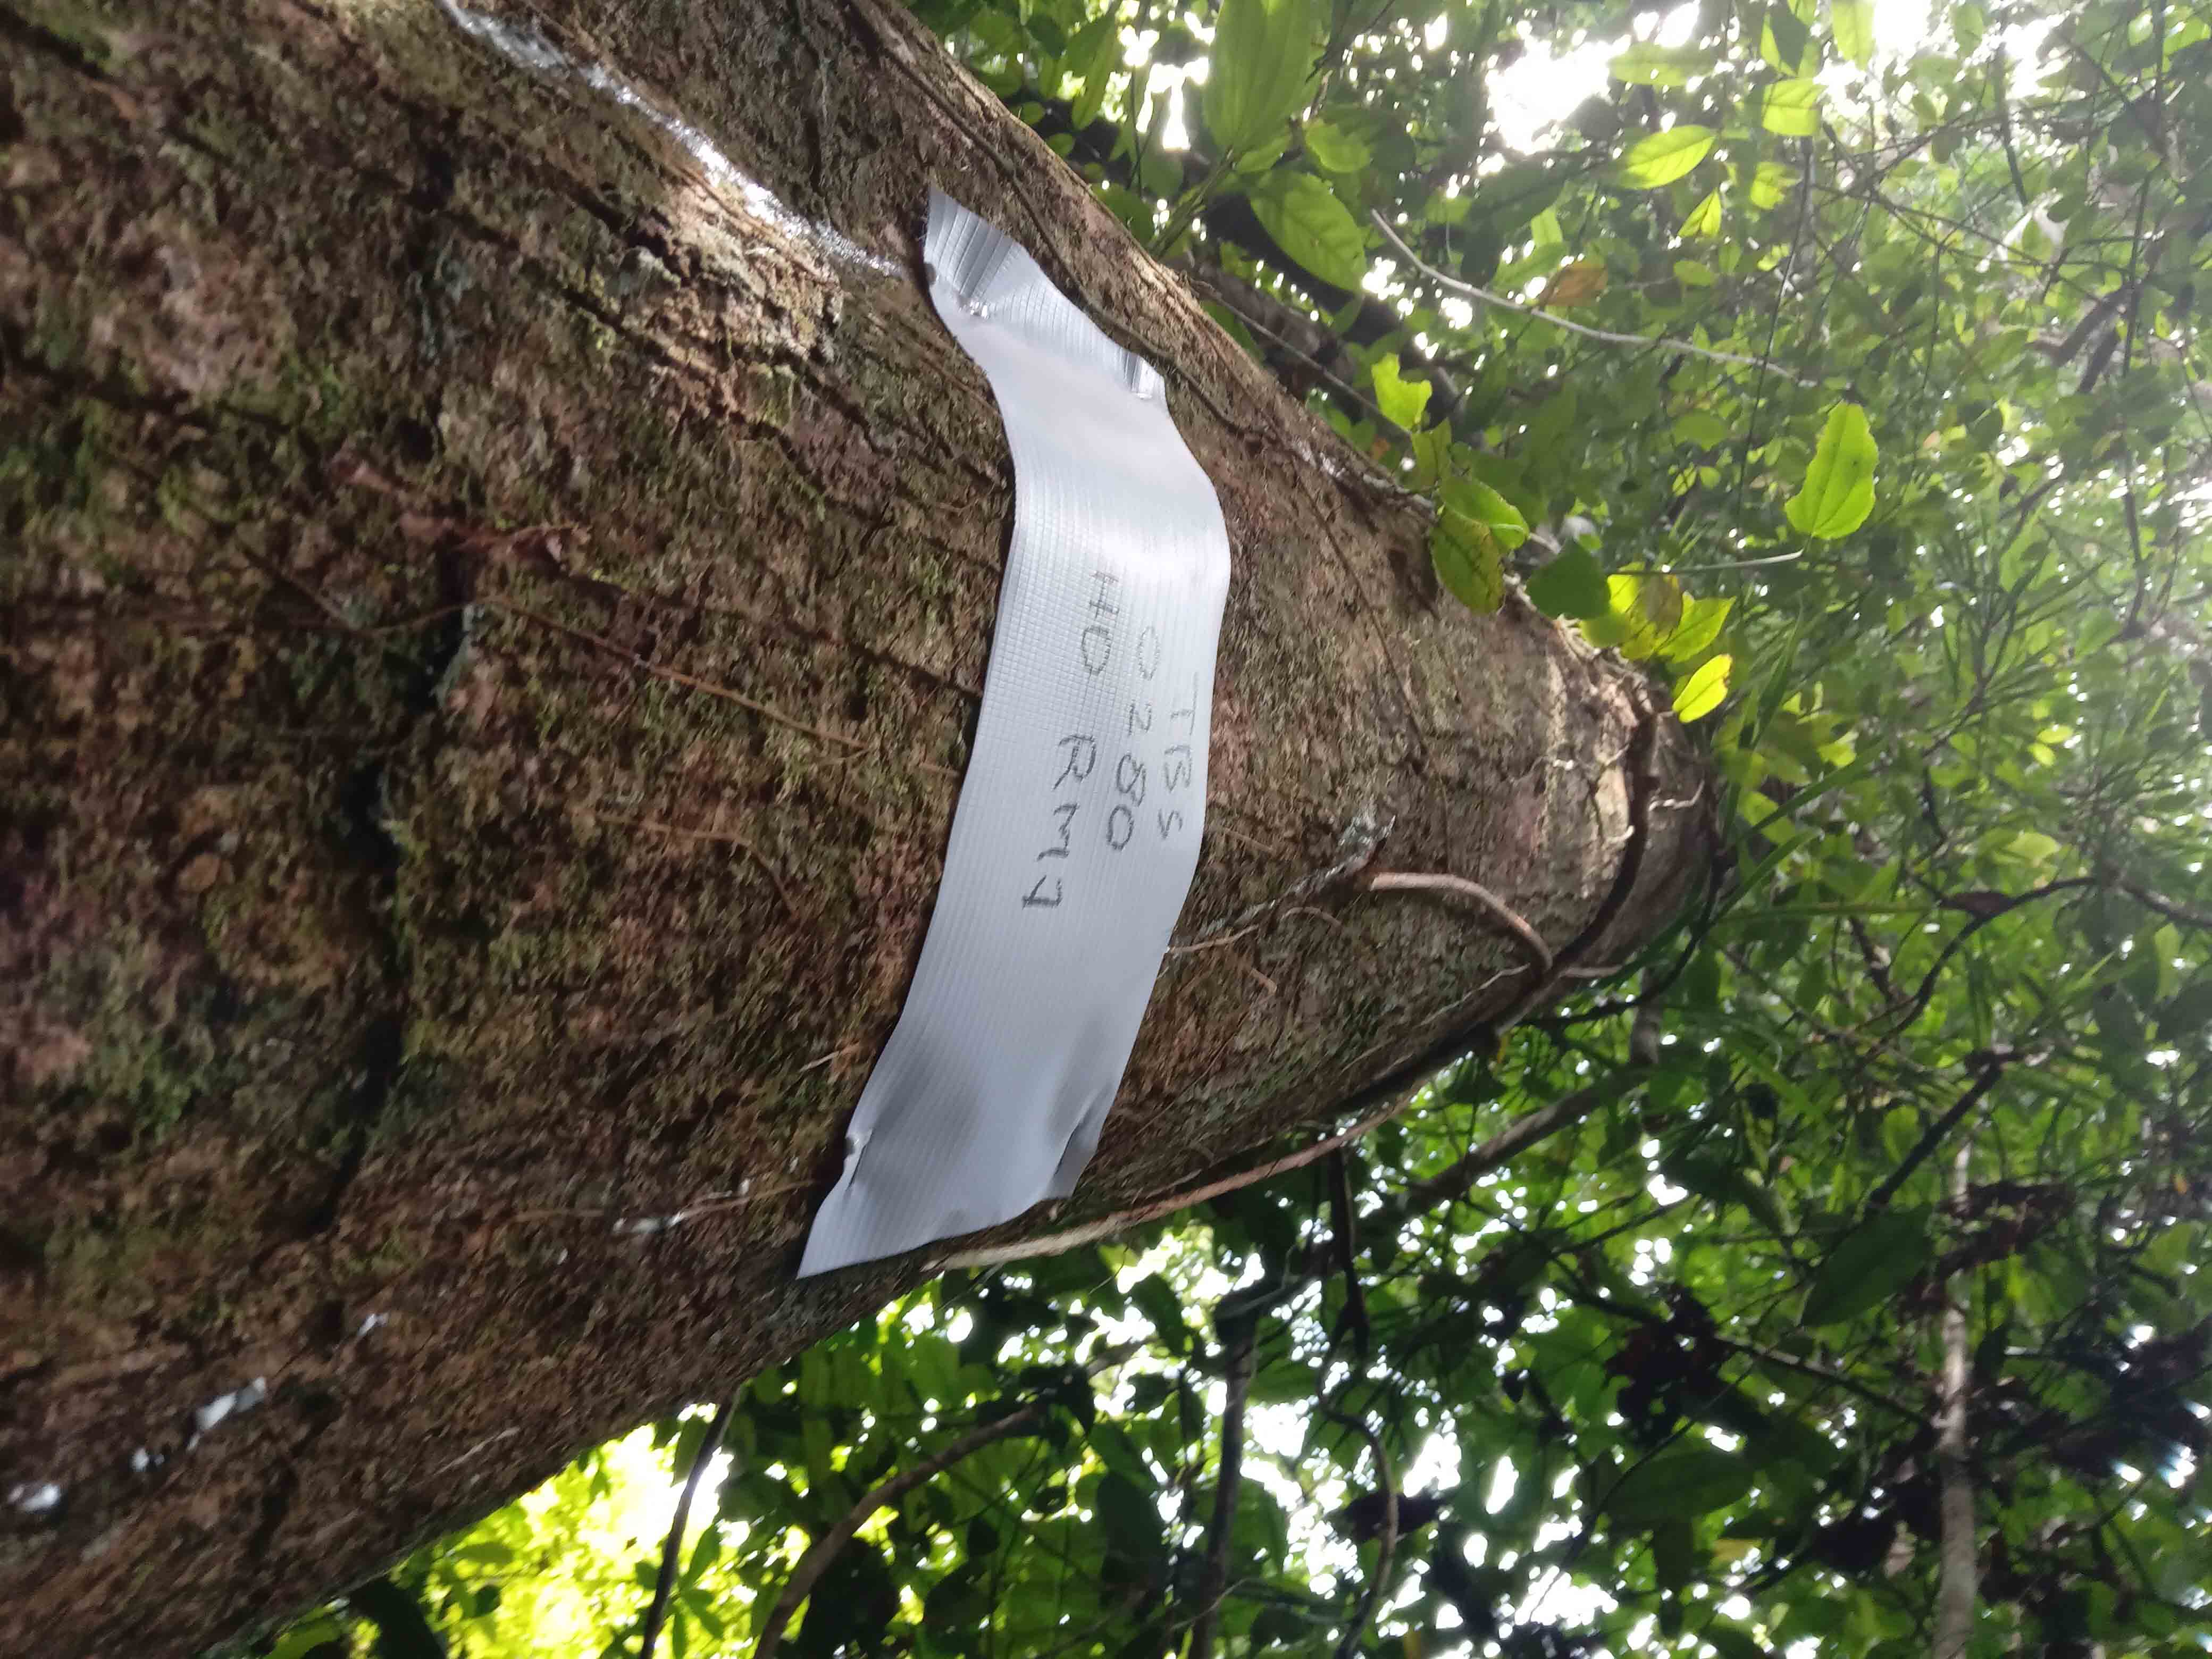 TBS
0280
HD RMJ